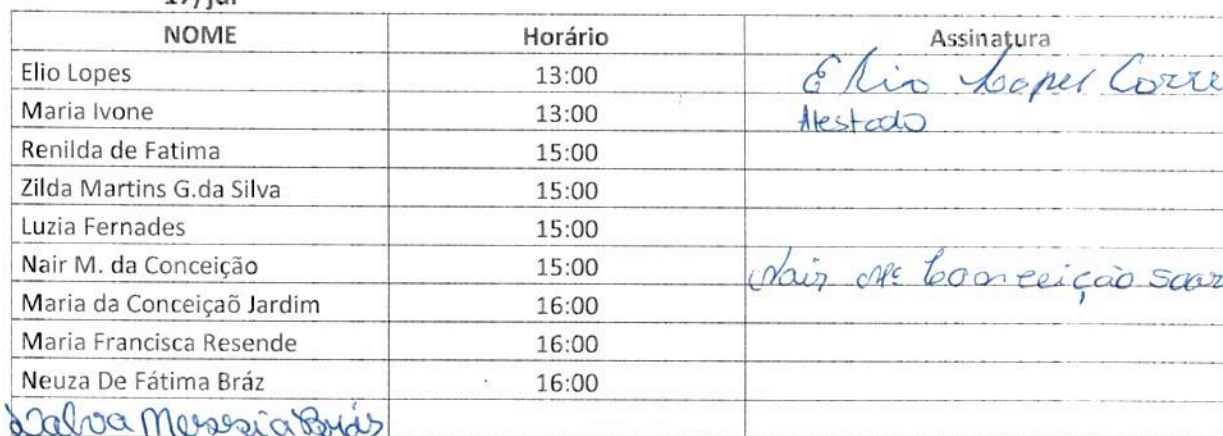 17/jul
NOME Horário Assinatura
Elio Lopes 13:00 Elio Lopes Corre
Maria Ivone 13:00 Atestado
Renilda de Fatima 15:00
Zilda Martins G.da Silva 15:00
Luzia Fernades 15:00
Nair M. da Conceição 15:00 Nair Mª Conceição Soar
Maria da Conceiçaõ Jardim 16:00
Maria Francisca Resende 16:00
Neuza De Fátima Bráz 16:00
Dalva